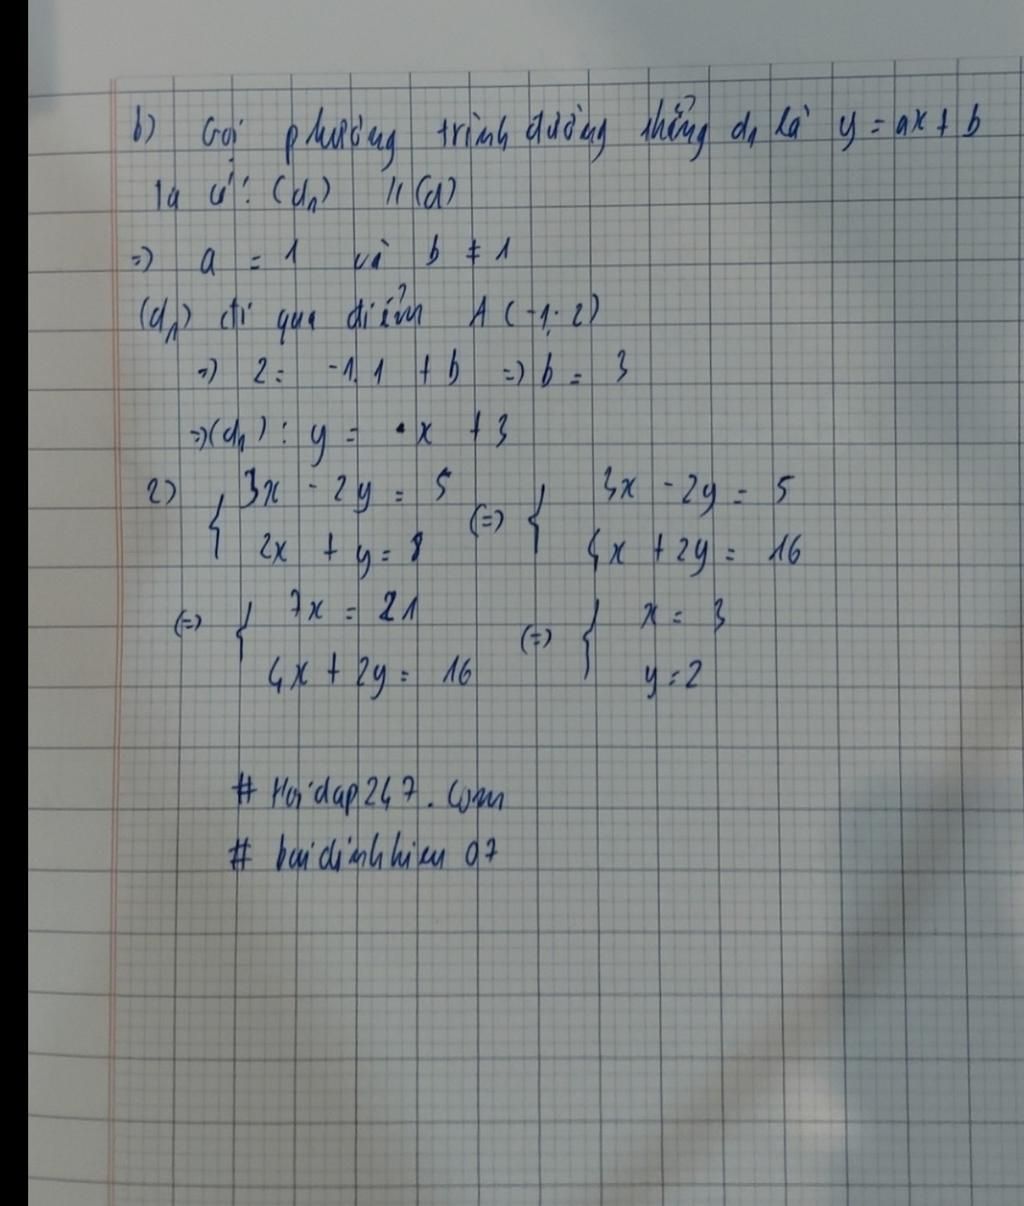 b) Gọi phương trình đường thẳng d₁ là y = ax + b
Ta có: (d₁) // (d)
=> a = 1 và b ≠ 1
(d₁) đi qua điểm A (-1; 2)
=> 2 = -1.1 + b => b = 3
=> (d₁) : y = x + 3
2) { 3x - 2y = 5 (=) { 3x - 2y = 5
2x + y = 8 4x + 2y = 16
(=) { 7x = 21 (=) { x = 3
4x + 2y = 16 y = 2
# Hoidap247.com
# buidinhhieu07